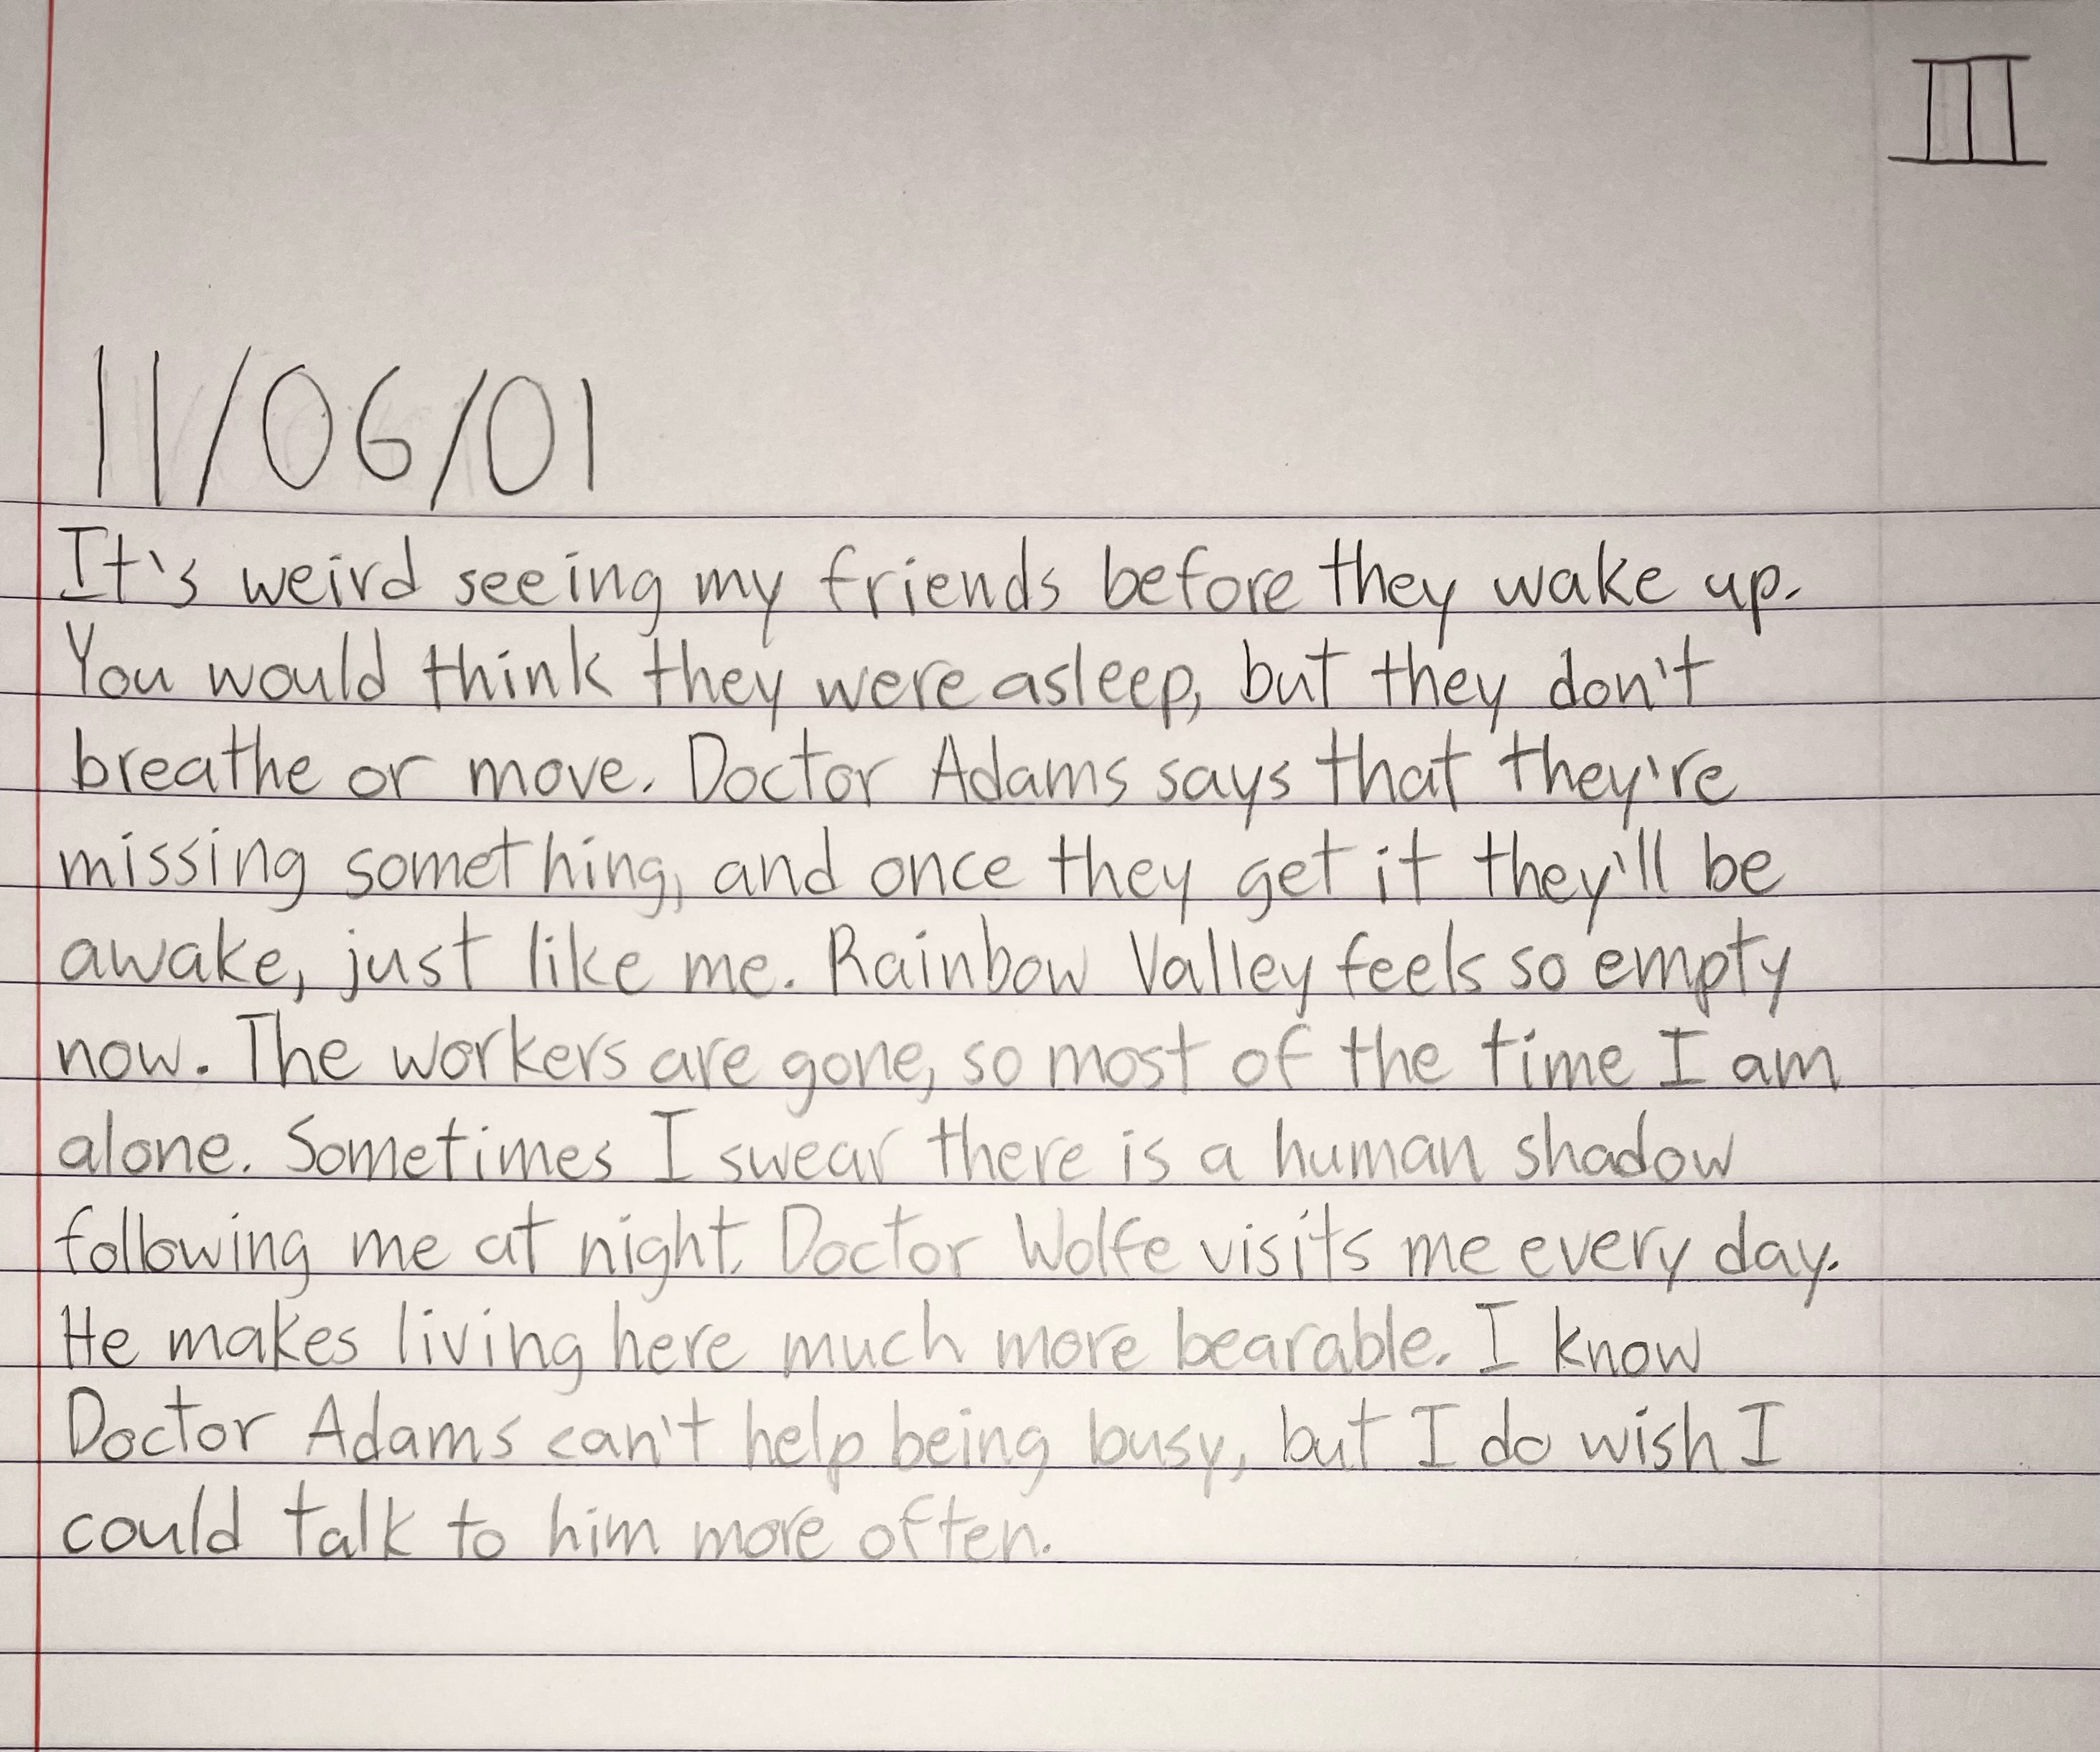 III
11/06/01
It's weird seeing my friends before they wake up.
You would think they were asleep, but they don't
breathe or move. Doctor Adams says that they're
missing something, and once they get it they'll be
awake, just like me. Rainbow Valley feels so empty
now. The workers are gone, so most of the time I am
alone. Sometimes I swear there is a human shadow
following me at night. Doctor Wolfe visits me every day.
He makes living here much more bearable. I know
Doctor Adams can't help being busy, but I do wish I
could talk to him more often.